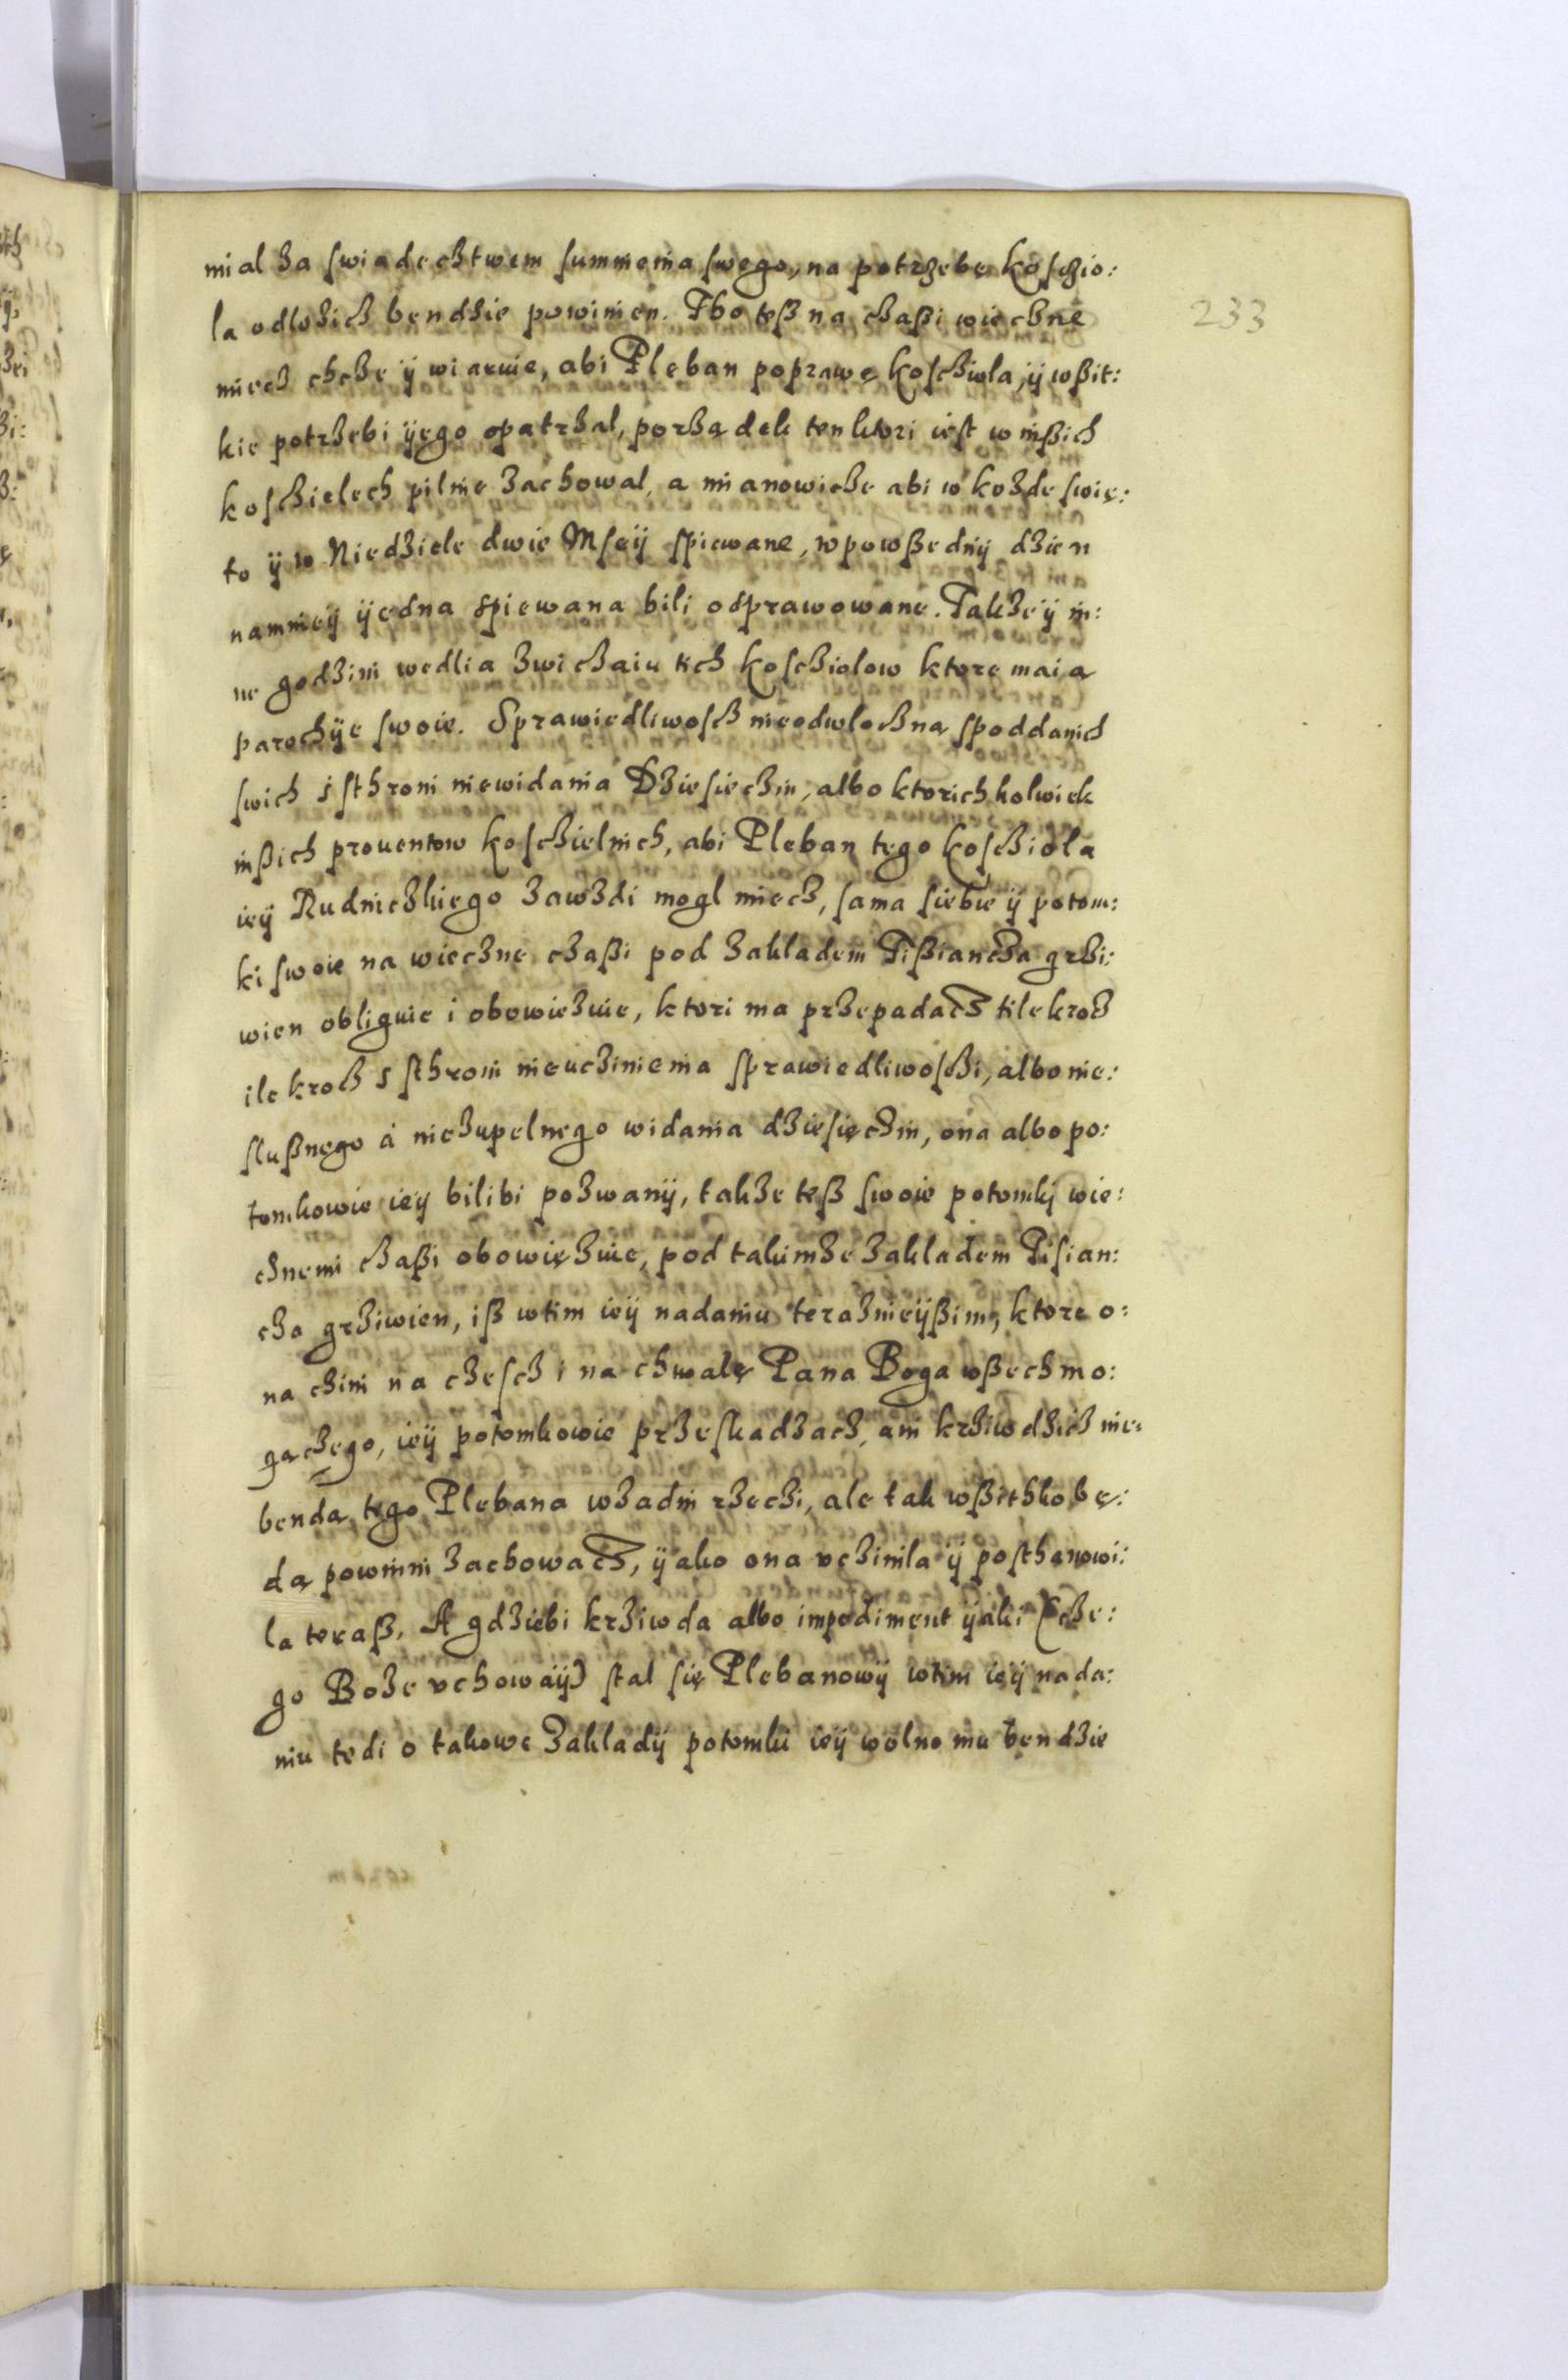 mial za swiadecztwem summenia swego, na potrzebę kosczio:
la odlozicz bendzie powinien. Tho teß na czaßi wieczne
miecz chcze ÿ wiaruie, abi Pleban poprawę koscziola, ÿ wßit:
kie potrzebi ÿego opatrzal, porządek ten ktori iest w inßich
kosczielech pilnie zachowal, a mianowicze abi w kożde swię:
to ÿ w Niedziele dwie Mseÿ spiewane, w powßednÿ dzien
namnieÿ ÿedna spiewana bili odprawowane. Takzeÿ in:
ne godzini wedlia zwiczaiu tich kosciolow ktore maią
parochÿe swoie. Sprawiedliwoscz nieodwloczną s poddanich
swich s sthroni niewidania Dziesieczin, albo ktorichkolwiek
inßich prouentow kosczielnich, abi Pleban tego koscziola
ieÿ Rudniczkiego zawzdi mogl miecz, sama siebie ÿ potom:
ki swoie na wieczne czaßi pod zakladem Tißiancza grzi:
wien obliguie i obowiezuie, ktori ma przepadacz tilekrocz
ilekrocz s sthroni nieuczinienia sprawiedliwosczi, albo nie:
slußnego á niezupelnego widania dziesięczin, ona albo po:
tomkowie ieÿ bilibi pozwanÿ, takze teß swoie potomki wie:
cznemi czaßi obowięzuie, pod takimze zakladem Tisian:
cza grziwien, iß w tim ieÿ nadaniu teraznieÿßim, ktore o:
na czini na czescz i na chwalę Pana Boga wßechmo:
gączego, ieÿ potomkowie przeskadzacz, ani krziwdzicz nie:
bendą tego Plebana w zadni rzeczi, ale tak wßithko bę:
dą powinni zachowacz, ÿako ona vczinila ÿ posthanowi:
la teraß. A gdziebi krziwda albo impediment ÿaki (cze:
go Boze vchowaÿ) stal się Plebanowÿ w tim ieÿ nada:
niu tedi o takowe zakladÿ potomki ieÿ wolno mu bendzie
233